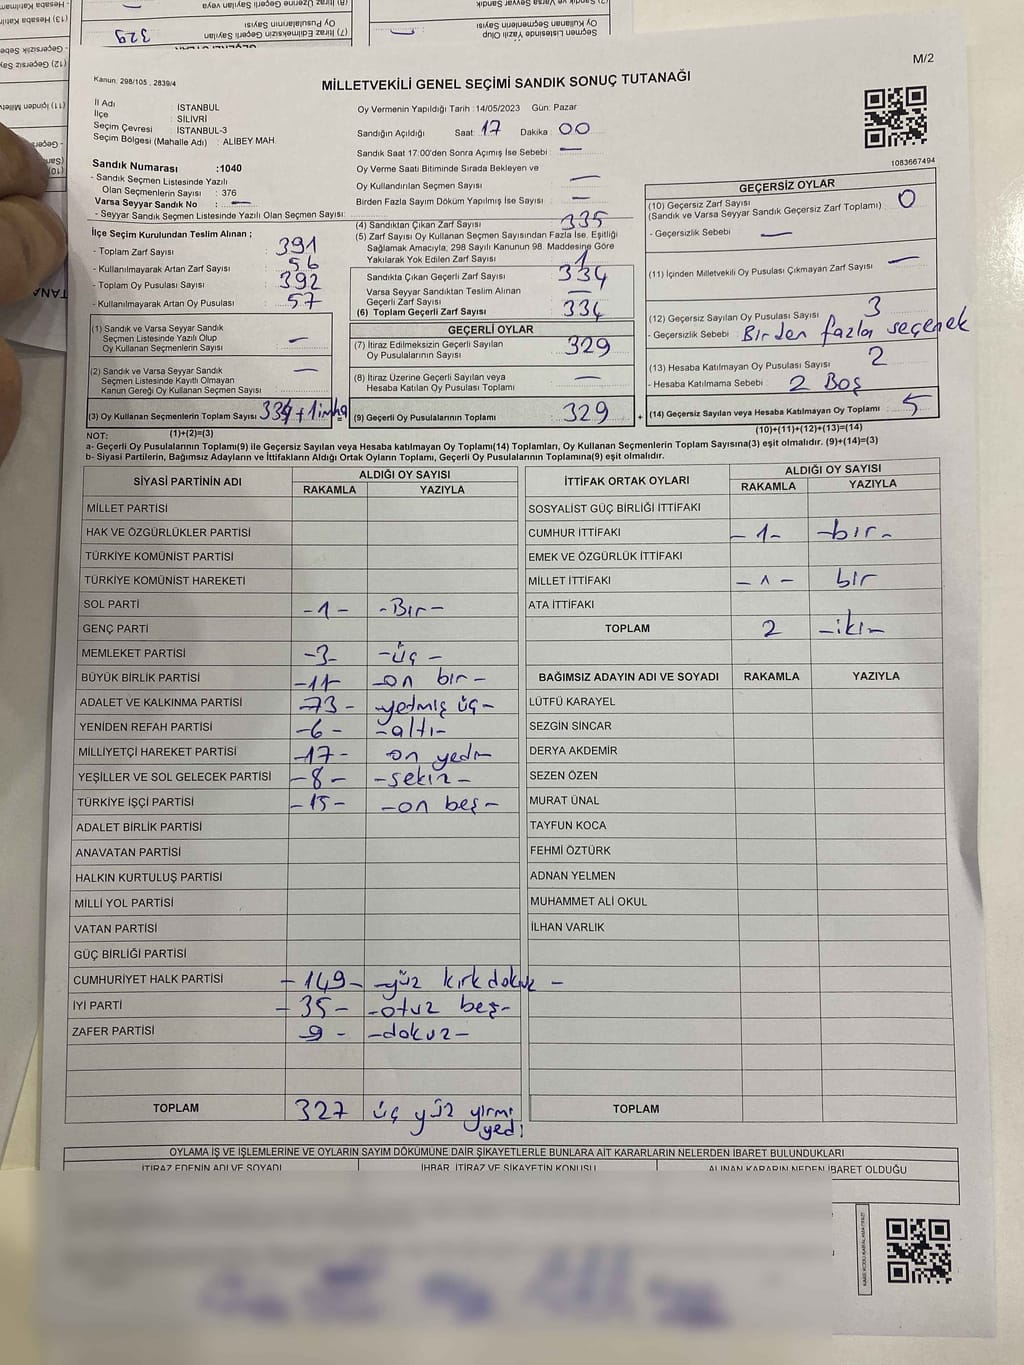 (7) İtiraz Edilmeksizin Geçerli Sayılan
Oy Pusulalarının Sayısı
329
Seçmen Listesinde Yazılı Olup
Oy Kullanan Seçmenlerin Sayısı
M/2
Kanun: 298/105 , 2839/4
MİLLETVEKİLİ GENEL SEÇİMİ SANDIK SONUÇ TUTANAĞI
İl Adı : İSTANBUL
İlçe : SİLİVRİ
Seçim Çevresi : İSTANBUL-3
Seçim Bölgesi (Mahalle Adı) : ALİBEY MAH
Sandık Numarası :1040
- Sandık Seçmen Listesinde Yazılı
Olan Seçmenlerin Sayısı : 376
Varsa Seyyar Sandık No : —
- Seyyar Sandık Seçmen Listesinde Yazılı Olan Seçmen Sayısı:
İlçe Seçim Kurulundan Teslim Alınan ;
- Toplam Zarf Sayısı : 391
- Kullanılmayarak Artan Zarf Sayısı : 56
- Toplam Oy Pusulası Sayısı : 392
- Kullanılmayarak Artan Oy Pusulası : 57
(1) Sandık ve Varsa Seyyar Sandık
Seçmen Listesinde Yazılı Olup
Oy Kullanan Seçmenlerin Sayısı : —
(2) Sandık ve Varsa Seyyar Sandık
Seçmen Listesinde Kayıtlı Olmayan
Kanun Gereği Oy Kullanan Seçmen Sayısı : —
(3) Oy Kullanan Seçmenlerin Toplam Sayısı : 334 + 1 imha
(1)+(2)=(3)
Oy Vermenin Yapıldığı Tarih : 14/05/2023 Gün: Pazar
Sandığın Açıldığı Saat: 17 Dakika : 00
Sandık Saat 17:00'den Sonra Açımış İse Sebebi : —
Oy Verme Saati Bitiminde Sırada Bekleyen ve
Oy Kullandırılan Seçmen Sayısı : —
Birden Fazla Sayım Döküm Yapılmış İse Sayısı : —
(4) Sandıktan Çıkan Zarf Sayısı : 335
(5) Zarf Sayısı Oy Kullanan Seçmen Sayısından Fazla İse, Eşitliği
Sağlamak Amacıyla, 298 Sayılı Kanunun 98. Maddesine Göre
Yakılarak Yok Edilen Zarf Sayısı : 1
Sandıkta Çıkan Geçerli Zarf Sayısı : 334
Varsa Seyyar Sandıktan Teslim Alınan
Geçerli Zarf Sayısı : —
(6) Toplam Geçerli Zarf Sayısı : 334
GEÇERLİ OYLAR
(7) İtiraz Edilmeksizin Geçerli Sayılan
Oy Pusulalarının Sayısı : 329
(8) İtiraz Üzerine Geçerli Sayılan veya
Hesaba Katılan Oy Pusulası Toplamı : —
(9) Geçerli Oy Pusulalarının Toplamı : 329 +
1083667494
GEÇERSİZ OYLAR
(10) Geçersiz Zarf Sayısı : 0
(Sandık ve Varsa Seyyar Sandık Geçersiz Zarf Toplamı)
- Geçersizlik Sebebi : —
(11) İçinden Milletvekili Oy Pusulası Çıkmayan Zarf Sayısı : —
(12) Geçersiz Sayılan Oy Pusulası Sayısı : 3
- Geçersizlik Sebebi : Birden fazla seçenek
(13) Hesaba Katılmayan Oy Pusulası Sayısı : 2
- Hesaba Katılmama Sebebi : 2 Boş
(14) Geçersiz Sayılan veya Hesaba Katılmayan Oy Toplamı : 5
(10)+(11)+(12)+(13)=(14)
NOT:
a- Geçerli Oy Pusulalarının Toplamı(9) ile Geçersiz Sayılan veya Hesaba katılmayan Oy Toplamı(14) Toplamları, Oy Kullanan Seçmenlerin Toplam Sayısına(3) eşit olmalıdır. (9)+(14)=(3)
b- Siyasi Partilerin, Bağımsız Adayların ve İttifakların Aldığı Ortak Oyların Toplamı, Geçerli Oy Pusulalarının Toplamına(9) eşit olmalıdır.
SİYASİ PARTİNİN ADI ALDIĞI OY SAYISI
RAKAMLA YAZIYLA
MİLLET PARTİSİ
HAK VE ÖZGÜRLÜKLER PARTİSİ
TÜRKİYE KOMÜNİST PARTİSİ
TÜRKİYE KOMÜNİST HAREKETİ
SOL PARTİ -1- -Bır-
GENÇ PARTİ
MEMLEKET PARTİSİ -3- -üç-
BÜYÜK BİRLİK PARTİSİ -11- -on bır-
ADALET VE KALKINMA PARTİSİ -73- -yetmiş üç-
YENİDEN REFAH PARTİSİ -6- -altı-
MİLLİYETÇİ HAREKET PARTİSİ -17- -on yedı-
YEŞİLLER VE SOL GELECEK PARTİSİ -8- -sekiz-
TÜRKİYE İŞÇİ PARTİSİ -15- -on beş-
ADALET BİRLİK PARTİSİ
ANAVATAN PARTİSİ
HALKIN KURTULUŞ PARTİSİ
MİLLİ YOL PARTİSİ
VATAN PARTİSİ
GÜÇ BİRLİĞİ PARTİSİ
CUMHURİYET HALK PARTİSİ -149- -yüz kırk dokuz-
İYİ PARTİ -35- -otuz beş-
ZAFER PARTİSİ 9- -dokuz-
TOPLAM 327 üç yüz yirmi
yedi
İTTİFAK ORTAK OYLARI ALDIĞI OY SAYISI
RAKAMLA YAZIYLA
SOSYALİST GÜÇ BİRLİĞİ İTTİFAKI
CUMHUR İTTİFAKI -1- -bır-
EMEK VE ÖZGÜRLÜK İTTİFAKI
MİLLET İTTİFAKI -1- bır
ATA İTTİFAKI
TOPLAM 2 -iki-
BAĞIMSIZ ADAYIN ADI VE SOYADI RAKAMLA YAZIYLA
LÜTFÜ KARAYEL
SEZGİN SİNCAR
DERYA AKDEMİR
SEZEN ÖZEN
MURAT ÜNAL
TAYFUN KOCA
FEHMİ ÖZTÜRK
ADNAN YELMEN
MUHAMMET ALİ OKUL
İLHAN VARLIK
TOPLAM
OYLAMA İŞ VE İŞLEMLERİNE VE OYLARIN SAYIM DÖKÜMÜNE DAİR ŞİKAYETLERLE BUNLARA AİT KARARLARIN NELERDEN İBARET BULUNDUKLARI
İTİRAZ EDENİN ADI VE SOYADI İHBAR, İTİRAZ VE ŞİKAYETİN KONUSU ALINAN KARARIN NEDEN İBARET OLDUĞU